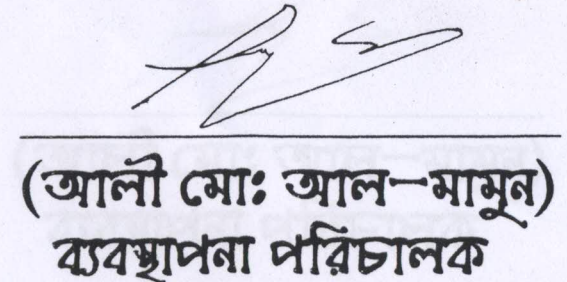 (আলী মোঃ আল-মামুন)
ব্যবস্থাপনা পরিচালক